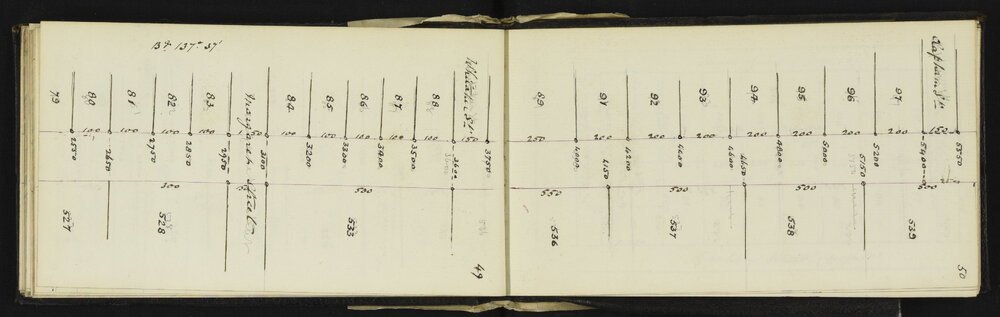 137° 37'
79
80
81
82
83
Margaret Street
84
85
86
87
88
100
100
100
100
150
100
100
100
100
100
150
2550
2650
2750
2850
2950
3100
3200
3300
3400
3500
3600
3750
300
150
500
527
528
533
49
89
91
92
93
94
95
96
97
Lapham St
250
200
200
200
200
200
200
200
150
4000
4150
4200
4400
4600
4650
4800
5000
5150
5200
5400
5550
550
500
500
500
536
537
538
539
50